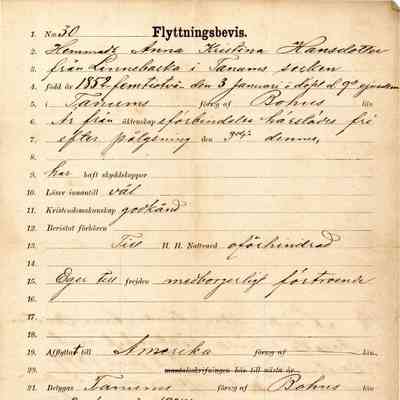 Flyttningsbevis.
1. N:o 30
2. Hemmads. Anna Kristina Hansdotter
3. från Linnebacka i Tanums socken
4. född år 1852 femtiotvå den 3 Januari o döpt d 9e
5. i Tanums förs:g af Bohus län
6. Är från äktenskapsförbindelse härstädes fri
7. efter pålysning den dennes,
8.
9. har haft skyddskoppor
10. Läser innantill väl
11. Kristendomskunskap godkänd
12. Bevistat förhören
13. Till H. H. Nattvard oförhindrad
14.
15. Eger till frejden medborgerligt förtroende
16.
17.
18.
19. Afflyttat till Amerika förs:g af län.
20. mantalsskrifningen här till nästa år.
21. Betygas Tanums förs:g af Bohus län